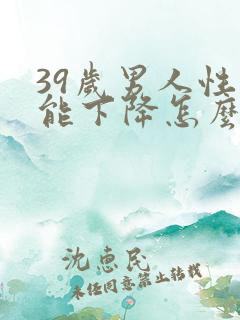 39歲男人性
能下降怎麼
沈惠民
未经同意禁止转载